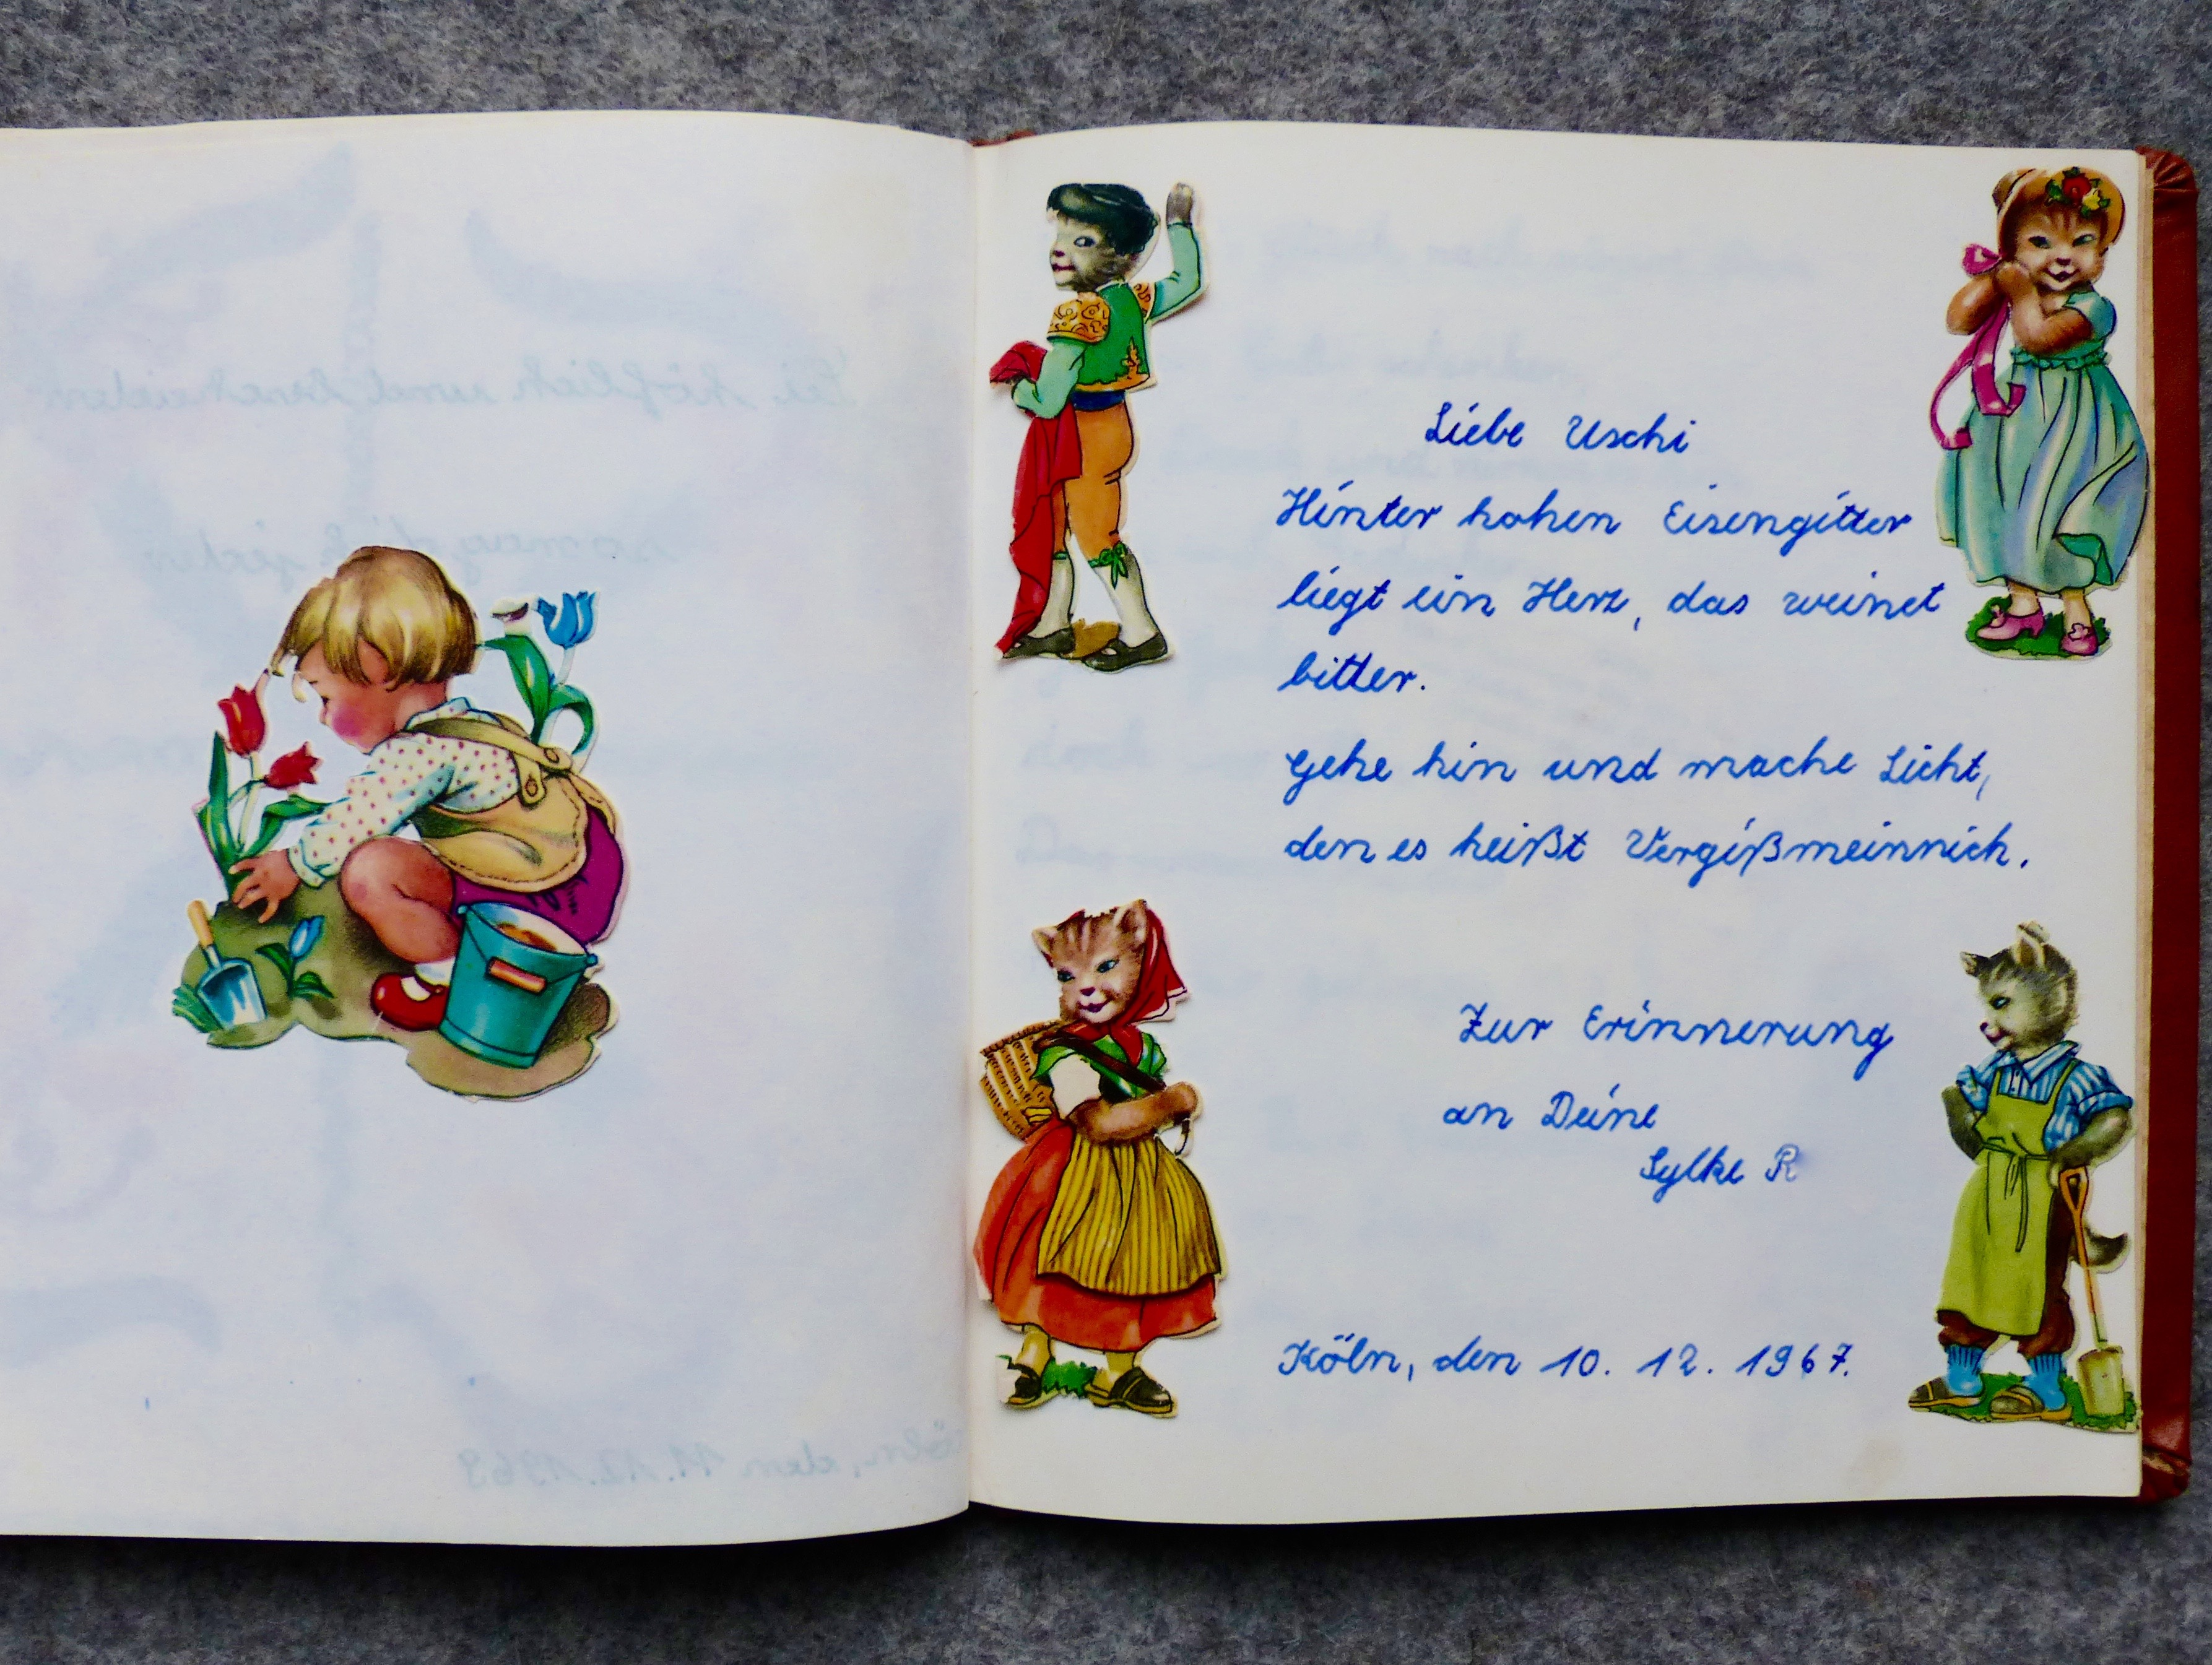 Liebe Uschi
Hinter hohen Eisengitter
liegt ein Herz, das weinet
bitter.
Gehe hin und mache Licht,
den es heißt Vergißmeinnich.
Zur Erinnerung
an Deine
Sylke R
Köln, den 10. 12. 1967.